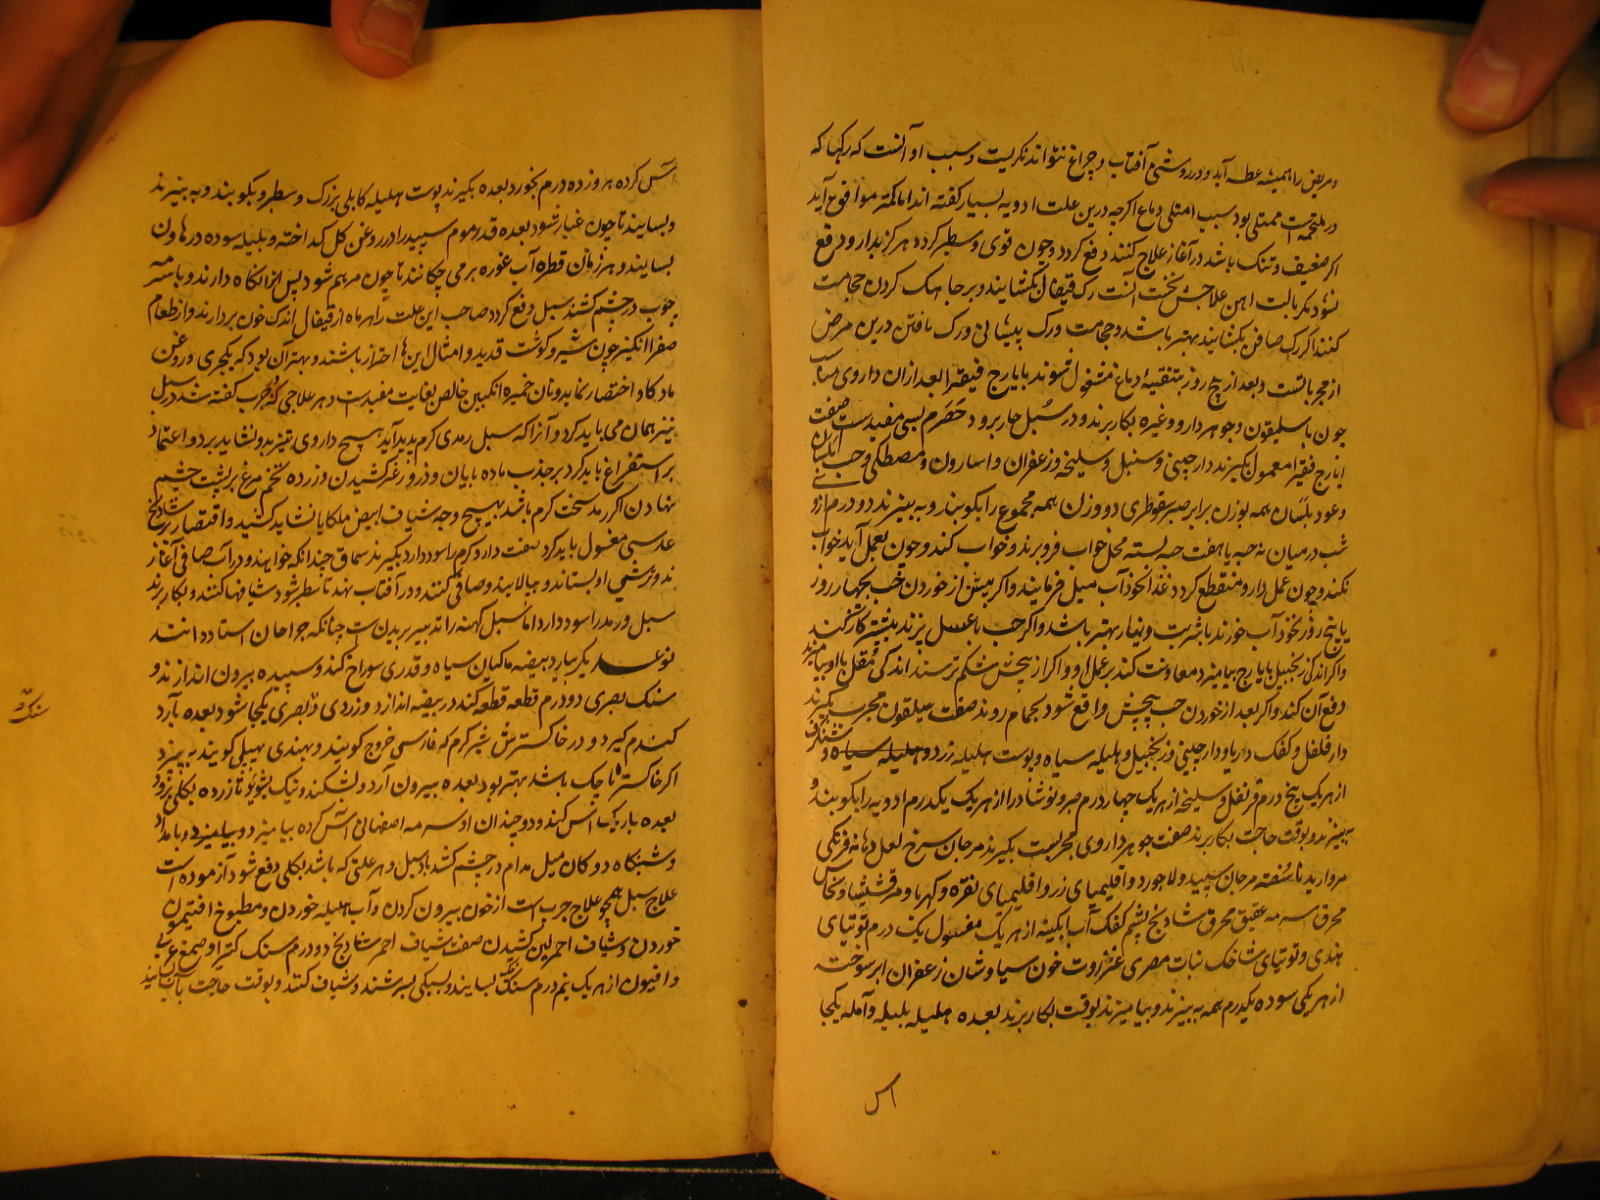 و مریض را همیشه عطسه آید و در روشنی آفتاب و چراغ نتواند نکریست و سبب او آنست که رکها که
در ملتحمه است ممتلی بود سبب امتلی دماغ اکرچه درین علت ادویه بسیار کفته اند اما کمتر موافق آید
اکر ضعیف و تنک باشد در آغاز علاج کنند دفع کردد و چون قوی و سطبر کردد هرکز بدارو دفع
نشود مکر بالت اهن علاجش نخست آنست رک قیفال بکشایند و بر جاهک کردن حجامت
کنند اکر رک صافن بکشایند بهتر باشد و حجامت و رک پیشانی و رک مافتن درین مرض
از مجرباتست و بعد از پنج روز بتنقیهٔ دماغ مشغول شوند بایارج فیقرا بعد ازان داروی مناسب
چون باسلیقون و جوهر دارو و غیره بکار برند و در سُبل حار برود حَصْرم بسی مفیدست صفت
ایارج فیقرا معمول بکیرند دارچینی و سنبل و سلیخه و زعفران و اسارون و مصطکی و حب بلسان
و عود بلسان همه بوزن برابر صبر سقوطری دو وزن همه مجموع را بکوبند و به بیزند دو درم ازو
شب درمیان نه حبه یا هفت حبه بسته محل خواب فرو برند و خواب کند و چون بعمل آید خواب
نکند و چون عمل دارو منقطع کردد غذا نخود آب میل فرمایند و اکر پیش از خوردن حَب بچهار روز
یا پنج روز نخود آب خورند باشربت دینار بهتر باشد و اکر حب با عسل پزند بیشتر کار کند
و اکر اندکی زنجبیل بایارج بیامیزند معاونت کند بر عمل او و اکر از پیچش شکم ترسند اندکی مُقل با او بیامیزند
دفع آن کند و اکر بعد از خوردن حب پیچش واقع شود بحمام روند صفت بیلقون مجرب بکیرند
دار فلفل و کفک دریا و دارچینی و زنجبیل و هلیله سیاه و پوست هلیله زرد و هلیله سیاه و شنکرفی
از هریک پنج درم قرنفل و سلیخه از هریک چهار درم صبر و نوشادر از هریک یکدرم ادویه را بکوبند و
به بیزند و بوقت حاجت بکار برند صفت جوهر داروی مجربست بکیرند مرجان سرخ لعل دهانه فرنکی
مروارید ناسُفته مرجان سپید و لاجورد و اقلیمیای زر و اقلیمیای نقره و کهربا و مرقشیشا و نحاس
محرق سرمه عقیق محرق شادنج پشم کفک آب ابکینه از هریک مغسول یک درم توتیای
هندی و توتیای شاخک نبات مصری عنزروت خون سیاوشان زعفران ابر سوخته
از هریکی سوده یکدرم همه به بیزند و بیامیزند بوقت بکار برند بعده هلیله بلیله و آمله یکجا
اس
آس کرده هر روز ده درم بخورد بعده بکیرند پوست هلیله کابلی بزرک و سطبر و بکوبند و به بیزند
و بسایند تا چون غبار شود بعده قدر موم سپید را در روغن کل کداخته و بلیله سوده در هاون
بسایند و هر زمان قطره آب غوره برمی چکانند تا چون مرهم شود پس ازان نکاه دارند و با سر
چوب در چشم کشند سبل دفع کردد صاحب این علت را هر ماه از قیفال اندک خون بردارند و از طعام
صفرا انکیز چون شیر و کوشت قدید و امثال این ها احتراز باشند و بهتر آن بود که بکجری و روغن
ماده کاو اختصار نماید و نان خمیره انکبین خالص بغایت مفیدست و هر علاجی که در جرب کفته شد در سبل
نیز همان می باید کرد و آنرا که سبل رمدی کرم پدید آید هیچ داروی تیز بدو نشاید برد و اعتماد
بر استفراغ باید کرد بر جذب ماده بایان و ذرور زغر کشیدن و زرده تخم مرغ بر پشت چشم
نهادن اکر رمد سخت کرم باشد بهیچ وجه شیاف ابیض ملکایا نشاید کشید و اقتصار بر شادنج
عدسی مغسول باید کرد صفت دارو کرم را سود دارد بکیرند سماق چندانکه خواهند و در آب صافی آغاز
ند و ترشی او بستاند و بپالایند و صافی کنند و در آفتاب نهد تا سطبر شود شیافها کنند و بکار برند
سبل و رمد را سود دارد اما سبل کهنه را تدبیر بریدن است چنانکه جراحان استاد دانند
نوع دیکر بیارد بیضه ماکیان سیاه و قدری سوراخ کند و سپیده بیرون اندازند و
سنک بصری دو درم قطعه قطعه کند در بیضه اندازد و زردی و بصری یکجا شود بعده بآرد
کندم کیرد و در خاکستر پشر شبر کرم که فارسی خروج کویند و بهندی پهپلی کویند به پزد
اکر خاکستر پاچک باشد بهتر بود بعده بیرون آرد و بشکند و نیک بشوید تا زرده بکلی برود
بعده باریک آس کند و دو چندان او سرمه اصفهانی آس کرده بیامیزد و بیامیزد و بامداد
و شبنکاه دوکان میل مدام در چشم کشد باد سبل و هر علتی که باشد بکلی دفع شود آزموده است
علاج سبل همچو علاج جرب است از خون بیرون کردن و آب هلیله خوردن و مطبوخ افتیمون
خوردن و شیاف احمر لین کشیدن صفت شیاف احمر شادنج دو درم سنک کتیرا و صمغ عربی
و افیون از هریک نیم درم سنک بسایند و بسیکی بسرشند و شیاف کنند و بوقت حاجت بآب سایند
سنک